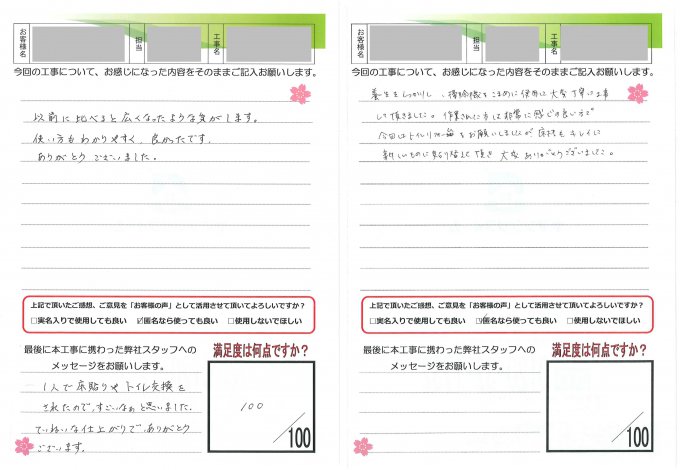 お客様名
担当
工事名
今回の工事について、お感じになった内容をそのままご記入お願いします。
以前に比べると広くなったような気がします。
使い方もわかりやすく、良かったです。
ありがとうございました。
上記で頂いたご感想、ご意見を「お客様の声」として活用させて頂いてよろしいですか？
□実名入りで使用しても良い ☑匿名なら使っても良い □使用しないでほしい
最後に本工事に携わった弊社スタッフへの
メッセージをお願いします。
1人で床貼りやトイレ交換を
されたので、すごいなぁと思いました。
ていねいな仕上がりで、ありがとう
ございます。
満足度は何点ですか？
100
/100
お客様名
担当
工事名
今回の工事について、お感じになった内容をそのままご記入お願いします。
養生をしっかりし、掃除機をこまめに使用し大変丁寧に工事
して頂きました。作業された方は非常に感じの良い方で
今回はトイレの をお願いしましたが床材もキレイに
新しいものに貼り替えて頂き 大変ありがとうございました。
上記で頂いたご感想、ご意見を「お客様の声」として活用させて頂いてよろしいですか？
□実名入りで使用しても良い ☑匿名なら使っても良い □使用しないでほしい
最後に本工事に携わった弊社スタッフへの
メッセージをお願いします。
満足度は何点ですか？
/100